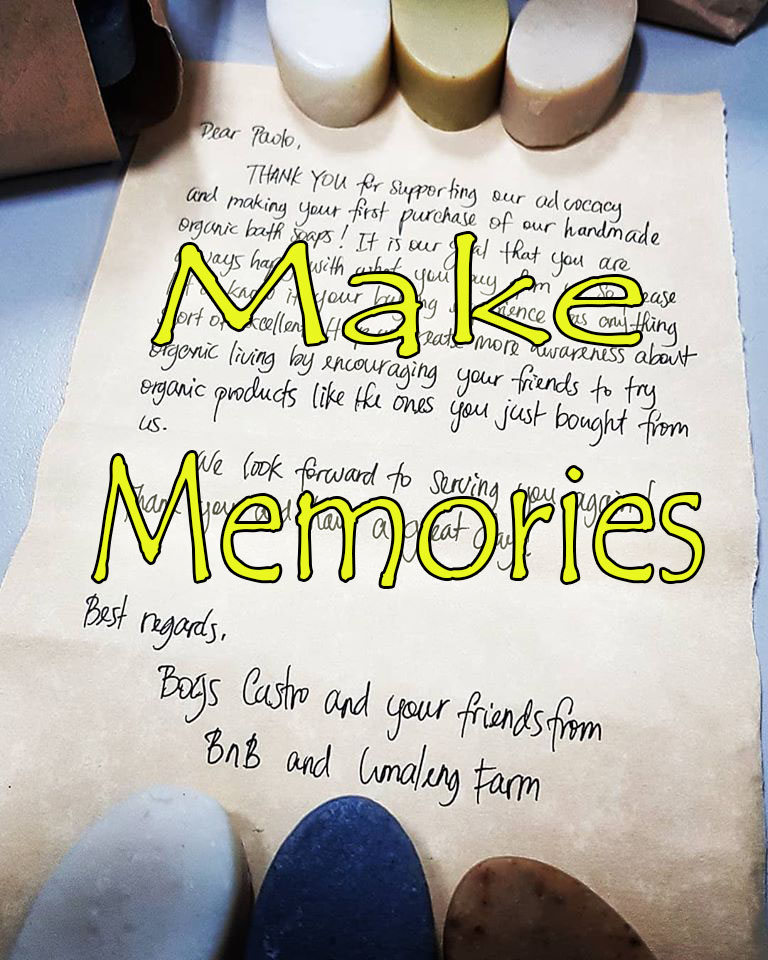 Dear Paolo,
THANK YOU for supporting our advocacy
and making your first purchase of our handmade
organic bath soaps! It is our goal that you are
always happy with what you buy from us. So please
let us know if your buying experience was anything
short of excellent. Help us create more awareness about
organic living by encouraging your friends to try
organic products like the ones you just bought from
us.
We look forward to serving you again!
Thank you and have a great day!
Best regards,
Bogs Castro and your friends from
BnB and Umaleng Farm
Make
Memories